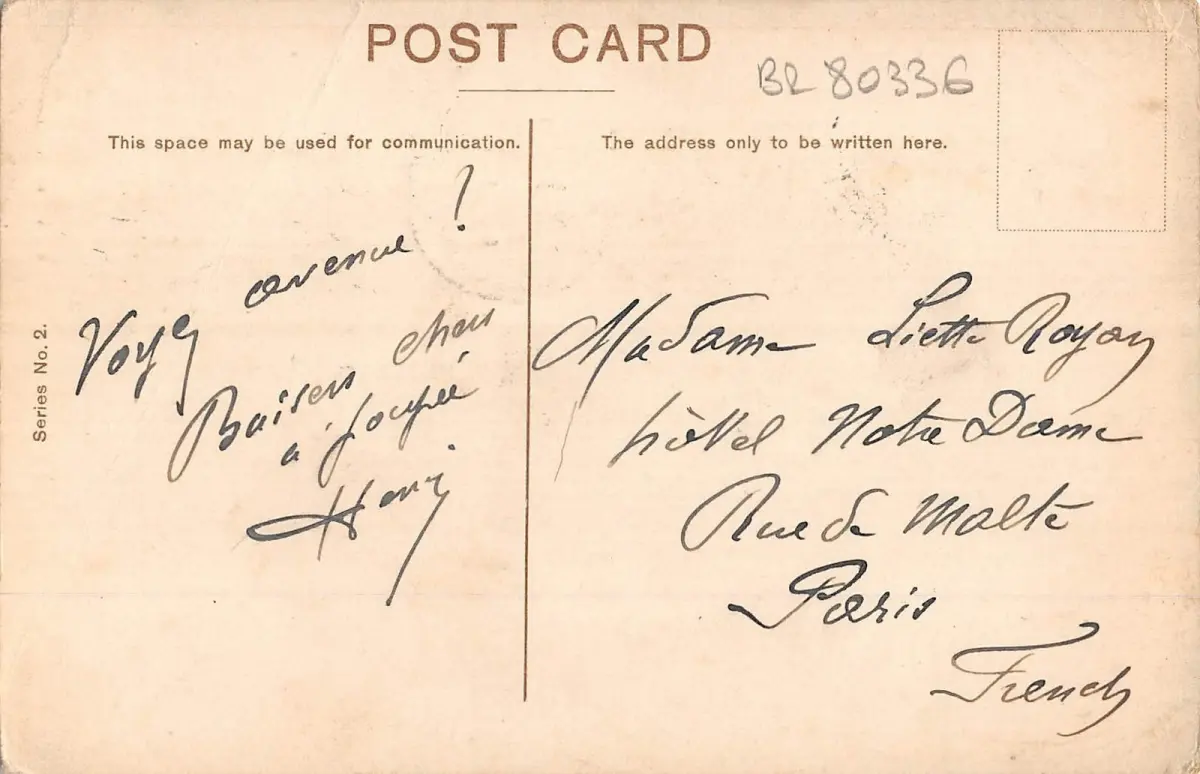 POST CARD
BR 80336
This space may be used for communication.
The address only to be written here.
Series No. 2.
avenue ?
Baisers chers
a
Henri
Madame Liette Royan
hôtel Notre Dame
Rue de Malte
Paris
French